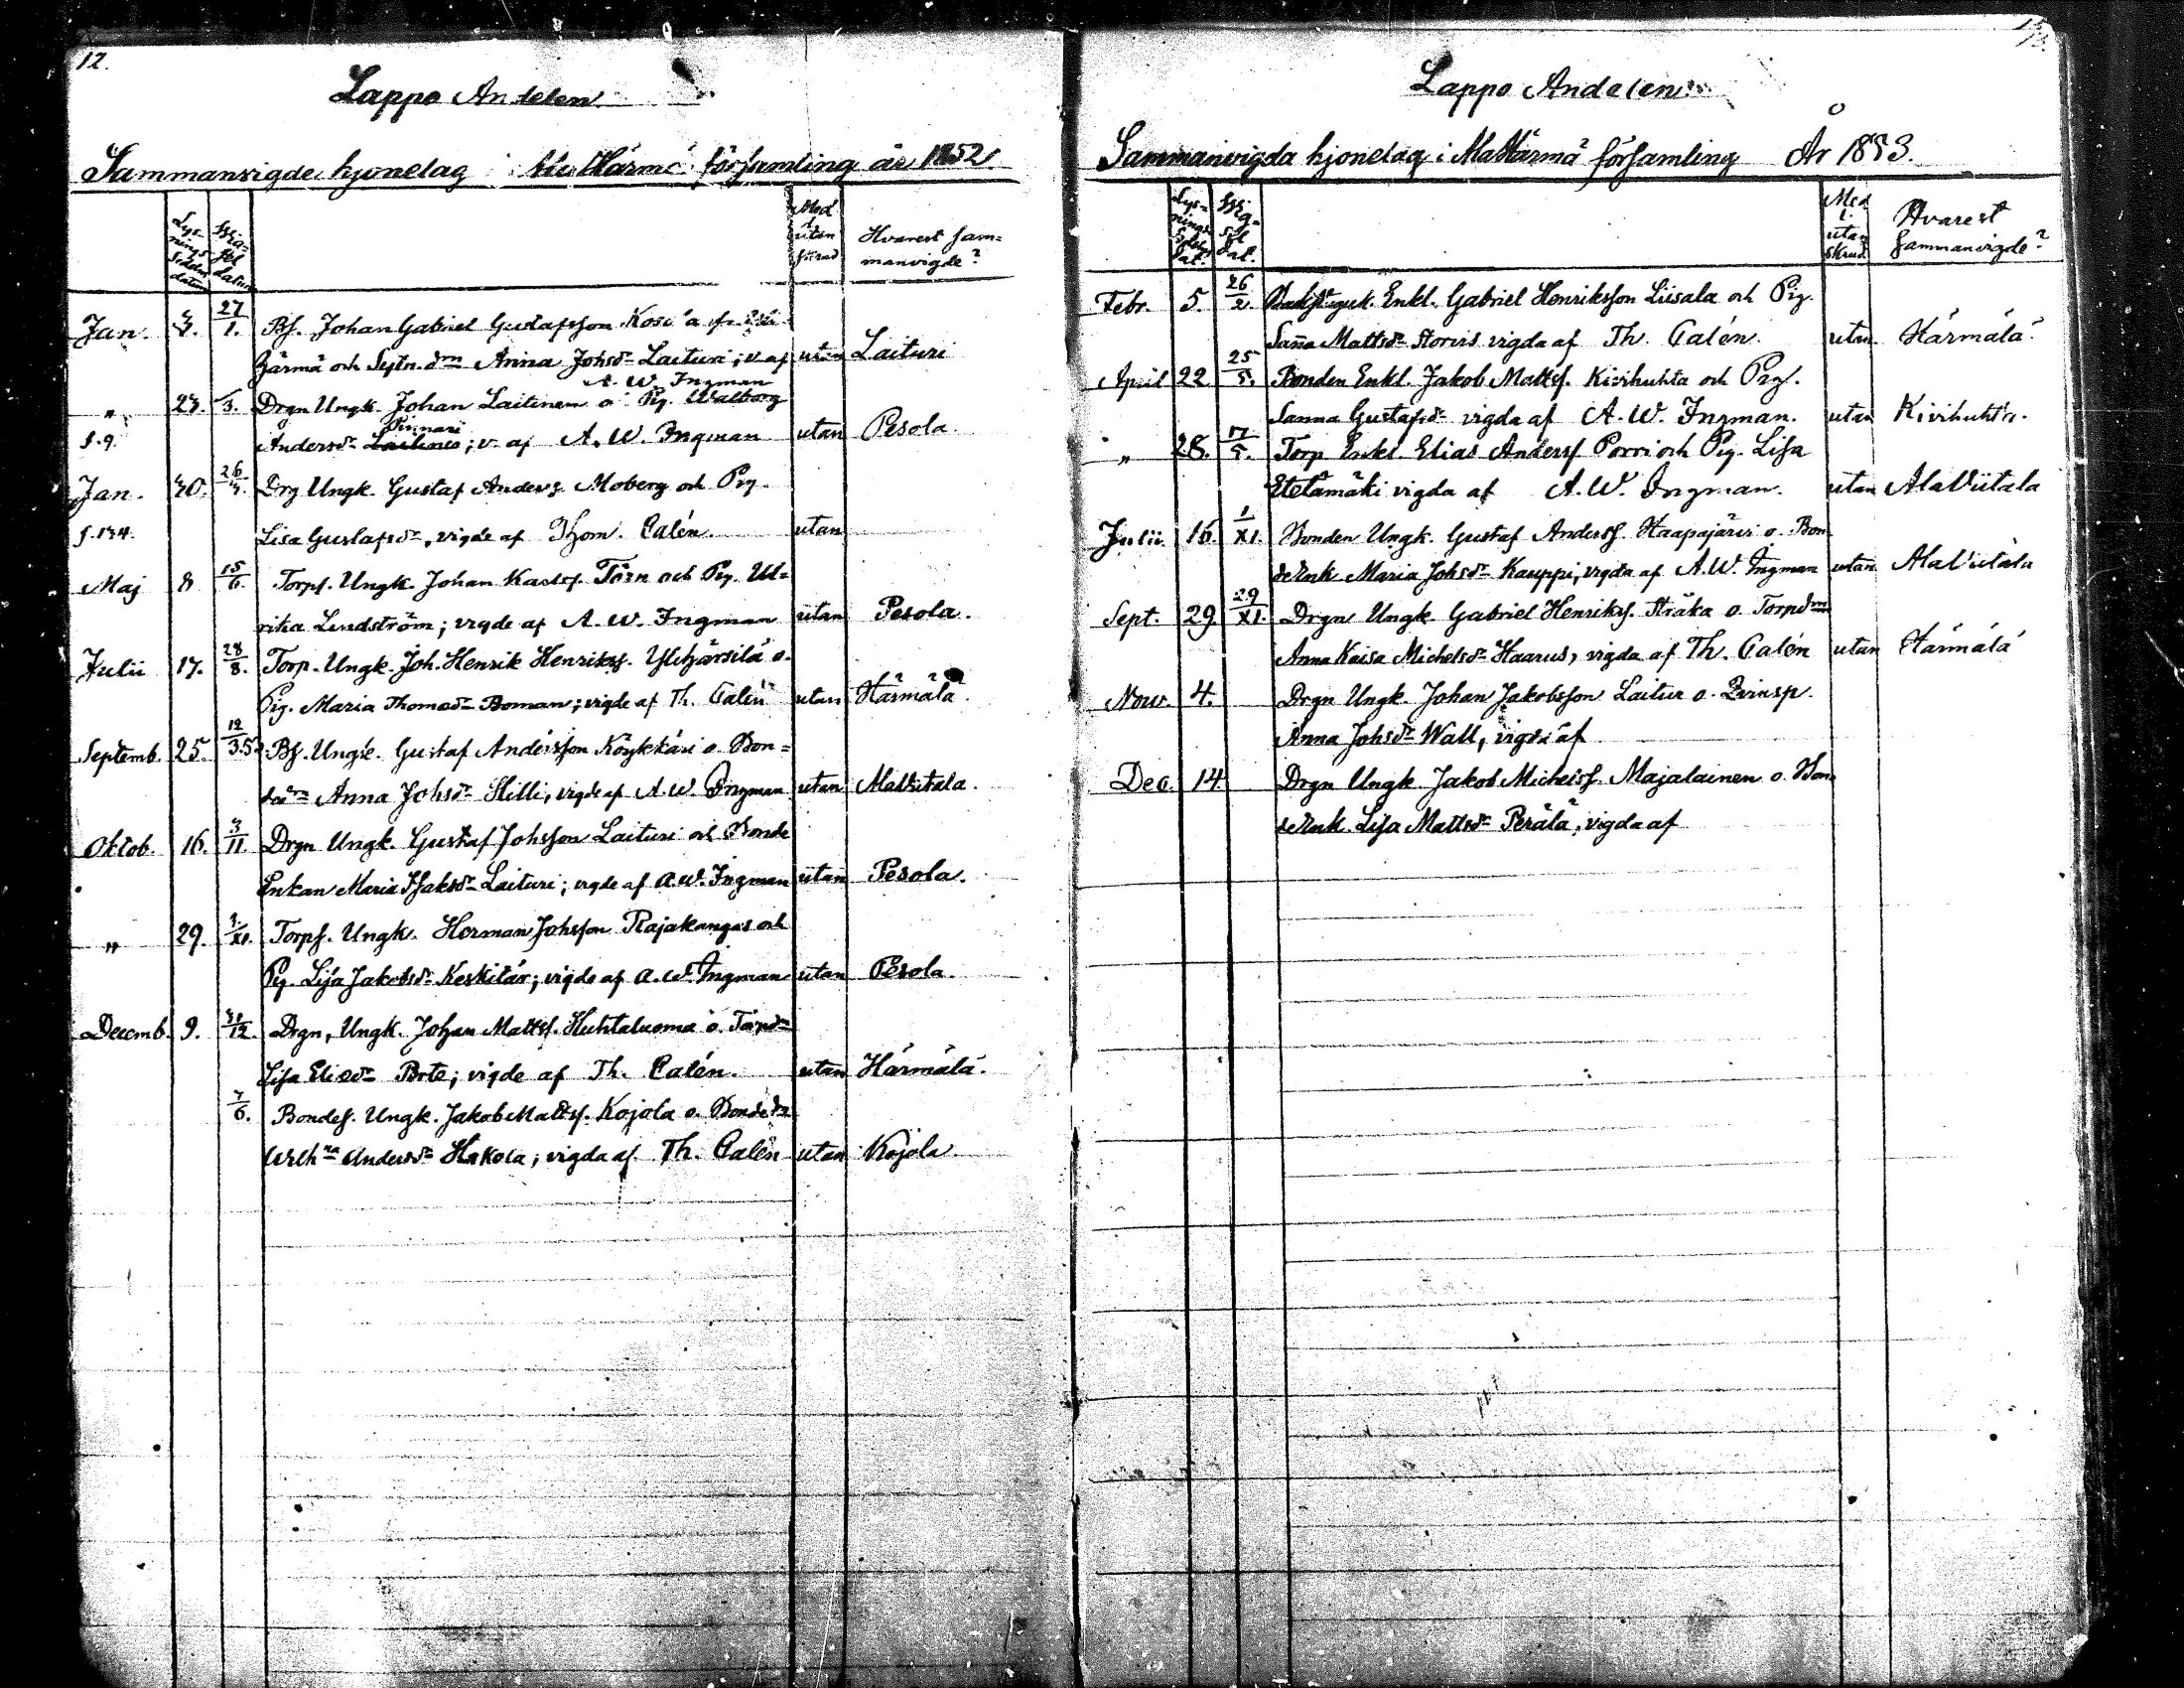 12.
Lappo Andelen
Sammanvigde hjonelag i Härmä församling år 1852
Lysningssedelns datum
Wigsel datum
Med l. utan skrud
Hvarest sammanvigde?
Jan. 27/1. Bs. Johan Gabriel Gustafsson
Härmä och Sytn.dm Anna Johsdr Laituri; v. af utan Laituri
A. W. Ingman
" 23. /3. Drgn Ungk. Johan Laitinen o. Pig. Walborg
Pinnari
f. 9. Andersdr Laitinen; v. af A. W. Ingman utan Pesola.
Jan. 30. 26/ Drg Ungk. Gustaf Anders. Moberg och Pig.
f. 134. Lisa Gustafsdr, vigde af Thom. Calén. utan
Maj 8 15/6. Torps. Ungk. Johan Karlss. Törn och Pig. Ul=
rika Lindström; vigde af A. W. Ingman utan Pesola.
Julii 17. 28/8. Torp. Ungk. Joh. Henrik Henrikss. Ylihärsilä o.
Pig. Maria Thomasdr Boman; vigde af Th. Calén utan Härmälä.
Septemb. 25. 12/3.53 Bs. Ungk. Gustaf Andersson Köykkäri o. Bon=
dedrn Anna Johsdr Hilli, vigde af A. W. Ingman utan AlaViitala.
Oktob. 16. 3/11 Drgn Ungk. Gustaf Johsson Laituri och Bonde
Enkan Maria Isaksdr Laituri; vigde af A. W. Ingman utan Pesola.
" 29. /XI. Torps. Ungk. Herman Johsson Rajakangas och
Pig. Lisa Jakobsdr Keskitär; vigde af A. W. Ingman utan Pesola.
Decemb. 9. 31/12. Drgn, Ungk. Johan Matts. Huhtaluoma o. Torpdr
Lisa Eliedr Porte; vigde af Th. Calén. utan Härmälä.
7/6. Bondes. Ungk. Jakob Matts. Kojola o. Bondedr
Wilhna Andersdr Hakola; vigda af Th. Calén utan Kojola.
13.
Lappo Andelen
Sammanvigda hjonelag i AlaHärmä församling År 1853.
Lysnings Sedelns Dat.
Wigsel Dat.
Med l. utan skrud
Hvarest sammanvigde?
Febr. 5. 26/2. Enkl. Gabriel Henriksson Liisala och Pig.
Sanna Mattsdr vigda af Th. Calén. utan Härmälä.
April 22 25/5. Bonden Enkl. Jakob Matts. Kivihuhta och Pig.
Sanna Gustafsdr vigda af A. W. Ingman. utan Kivihuhta.
" 28. 17/5. Torp Enkl. Elias Anderss Porri och Pig. Lisa
Etelämäki vigda af A. W. Ingman. utan AlaViitala
Julii 16. 1/XI. Bonden Ungk. Gustaf Anderss. Haapajärvi o. Bon
deEnk Maria Johsdr Kauppi, vigda af A. W. Ingman utan AlaViitala
Sept. 29 29/XI. Drgn Ungk. Gabriel Henrikss. Sträka o. Torpdrn
Anna Kaisa Michelsdr Haarus, vigda af Th. Calén utan Härmälä
Nov. 4. Drgn Ungk. Johan Jakobsson Laitur o. Qvinsp.
Anna Johsdr Wall, vigda af
Dec. 14. Drgn Ungk. Jakob Michelss. Majalainen o. Bon=
deEnk. Lisa Mattsdr Perälä; vigda af